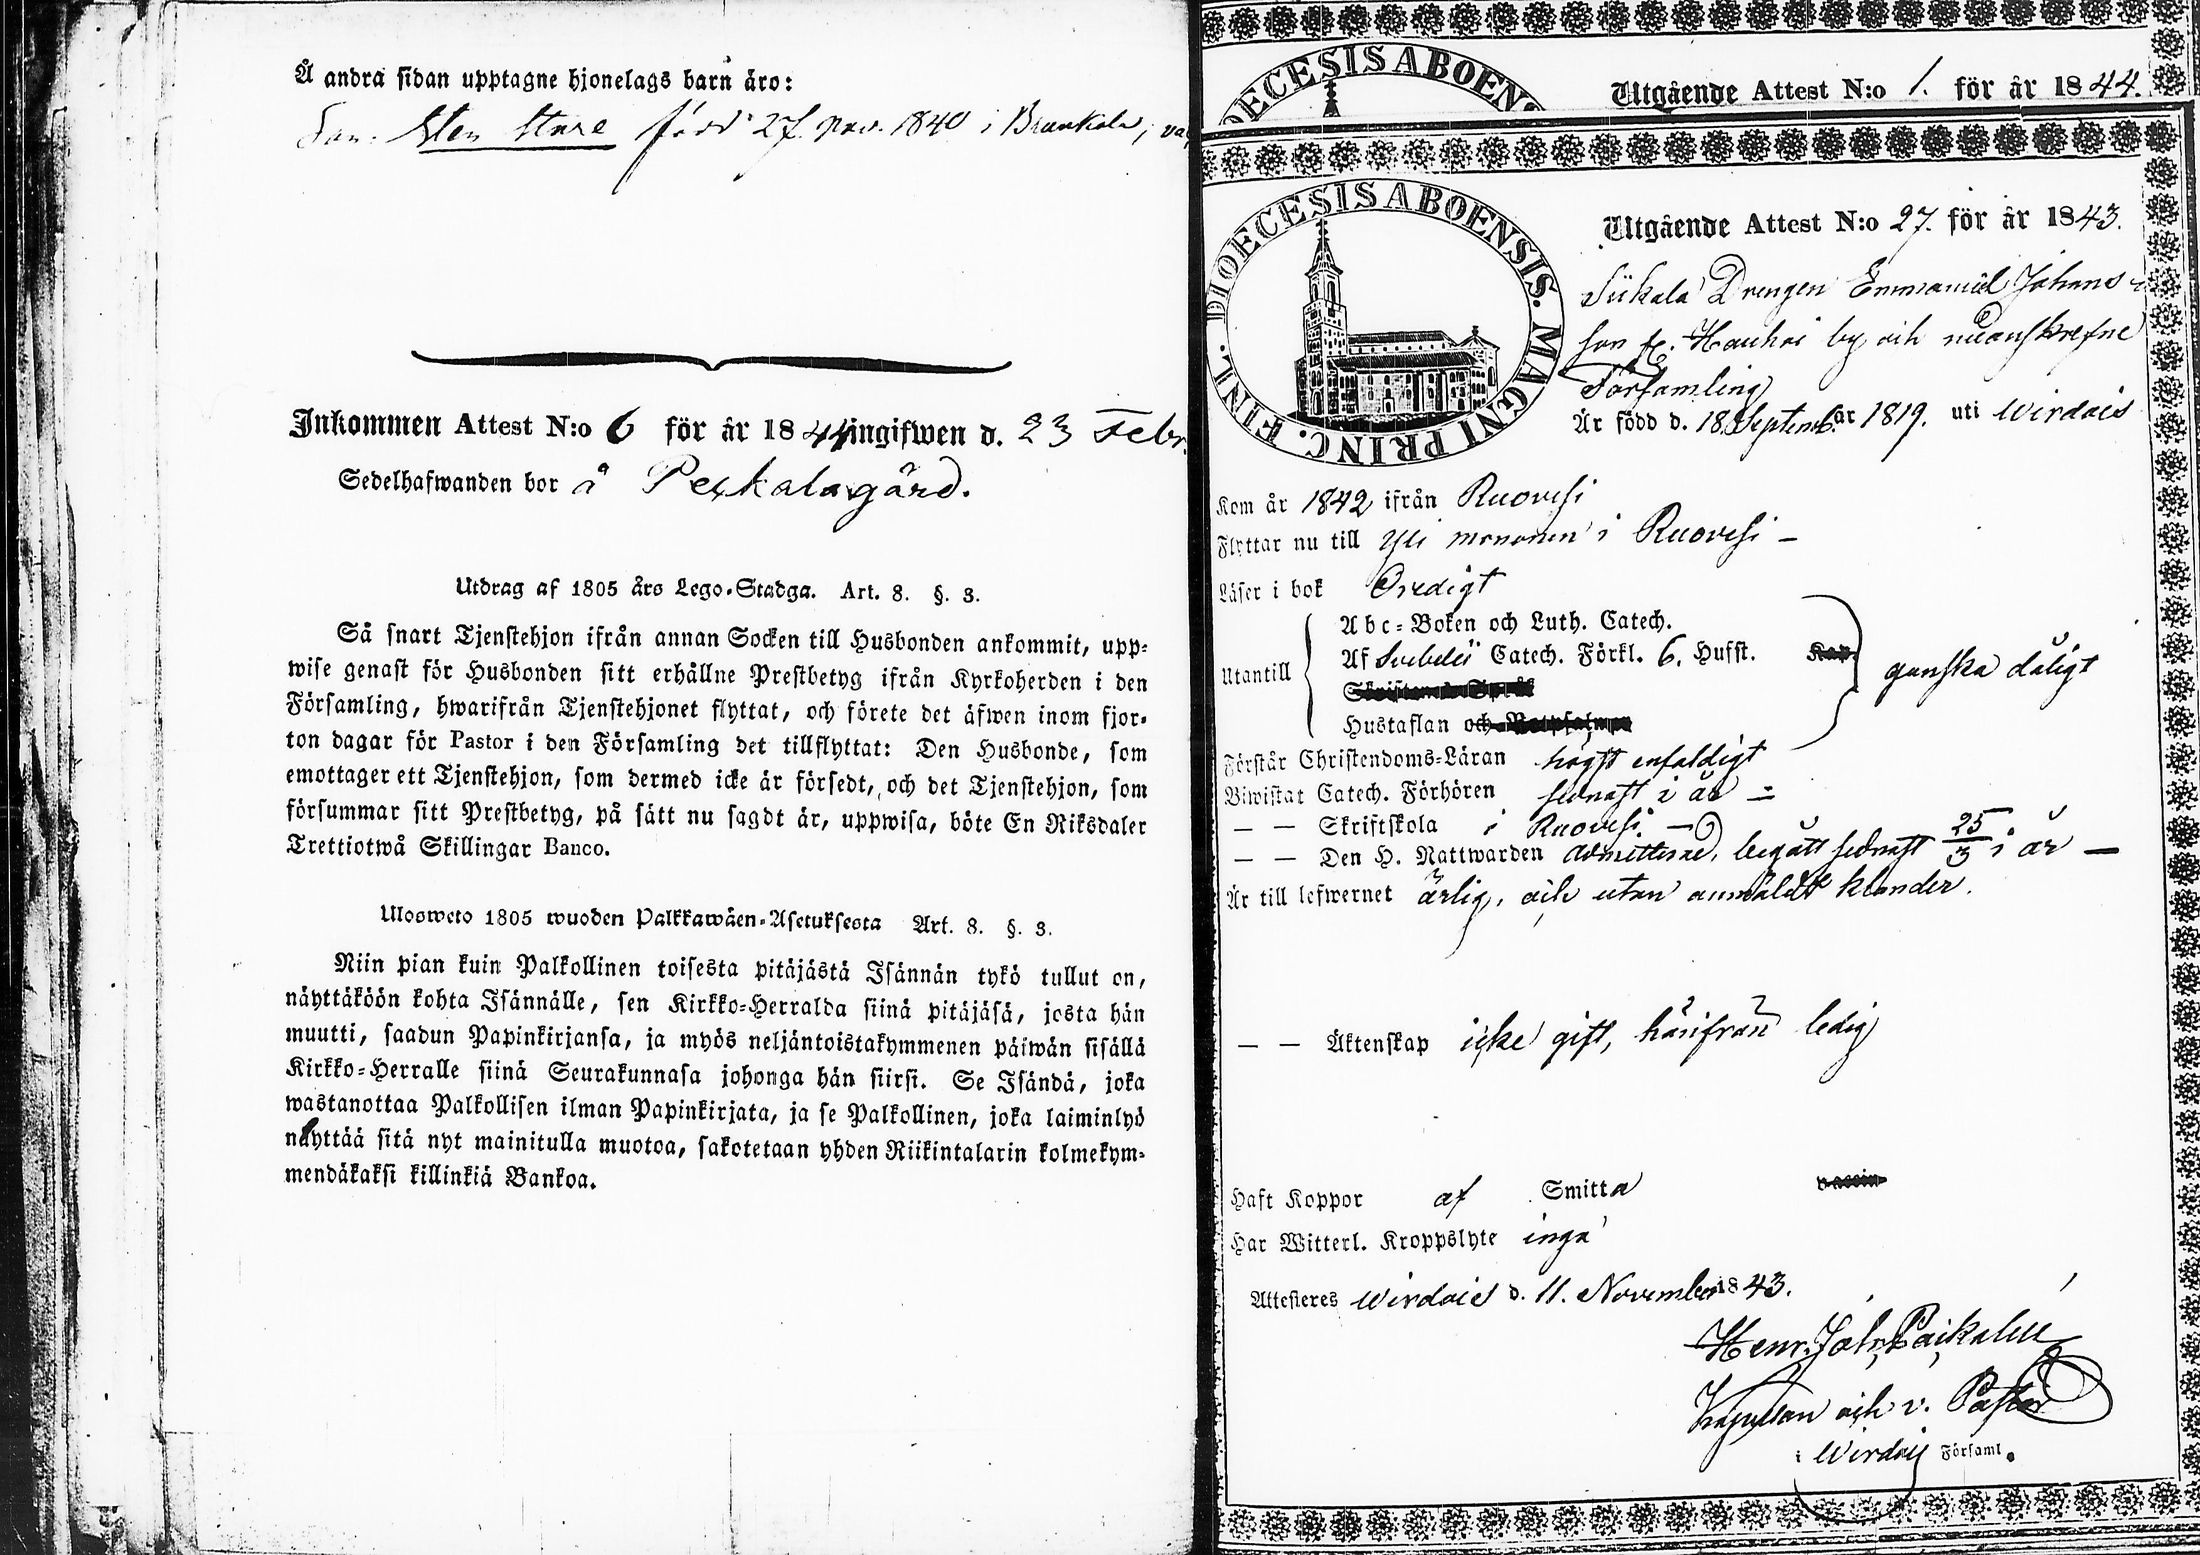 Å andra sidan upptagne hjonelags barn äro:
Son: Sten Sture född 27. nov. 1840 i Brankala,
Inkommen Attest N:o 6 för år 1844 ingifwen d. 23 Febr.
Sedelhafwanden bor å Peskalagård.
Utdrag af 1805 års Lego-Stadga. Art. 8. §. 3.
Så snart Tjenstehjon ifrån annan Socken till Husbonden ankommit, upp-
wise genast för Husbonden sitt erhållne Prestbetyg ifrån Kyrkoherden i den
Församling, hwarifrån Tjenstehjonet flyttat, och förete det äfwen inom fjor-
ton dagar för Pastor i den Församling det tillflyttat: Den Husbonde, som
emottager ett Tjenstehjon, som dermed icke är försedt, och det Tjenstehjon, som
försummar sitt Prestbetyg, på sätt nu sagdt är, uppwisa, böte En Riksdaler
Trettiotwå Skillingar Banco.
Ulosweto 1805 wuoden Palkkawäen-Asetuksesta Art. 8. §. 3.
Niin pian kuin Palkollinen toisesta pitäjästä Isännän tykö tullut on,
näyttäköön kohta Isännälle, sen Kirkko-Herralda siinä pitäjäsä, josta hän
muutti, saadun Papinkirjansa, ja myös neljäntoistakymmenen päiwän sisällä
Kirkko-Herralle siinä Seurakunnasa johonga hän siirsi. Se Isändä, joka
wastanottaa Palkollisen ilman Papinkirjata, ja se Palkollinen, joka laiminlyö
näyttää sitä nyt mainitulla muotoa, sakotetaan yhden Riikintalarin kolmekym-
mendäkaksi killinkiä Bankoa.
DIOECESIS ABOENSIS
Utgående Attest N:o 1. för år 1844.
DIOECESIS ABOENSIS. MAGNI PRINC. FINL.
Utgående Attest N:o 27. för år 1843.
Drengen Emmanuel Johans-
son fr. Hauhoi by och
Församling
Är född d. 18 Septemb.ar 1819. uti Wirdois
Kom år 1842 ifrån Ruovesi
Flyttar nu till Yli mononen i Ruovesi –
Läser i bok Oredigt
Utantill
Abc-Boken och Luth. Catech.
Af Svebelii Catech. Förkl. 6. Hufst. Kap.
Hustaflan och
ganska dåligt
Förstår Christendoms-Läran högst enfaldigt
Biwistat Catech. Förhören sednast i år –
— — Skriftskola i Ruovesi. –
— — Den H. Nattwarden admitterad, begått sednast 25/3 i år —
Är till lefwernet ärlig, och utan anmäldt klander.
— — Äktenskap icke gift, härifrån ledig
Haft Koppor af Smitta vaccin
Har Witterl. Kroppslyte inga
Attesteres Wirdois d. 11. November 1843.
Henr. Joh. Paikalen
Kapellan och v. Pastor
i Wirdois Församl.